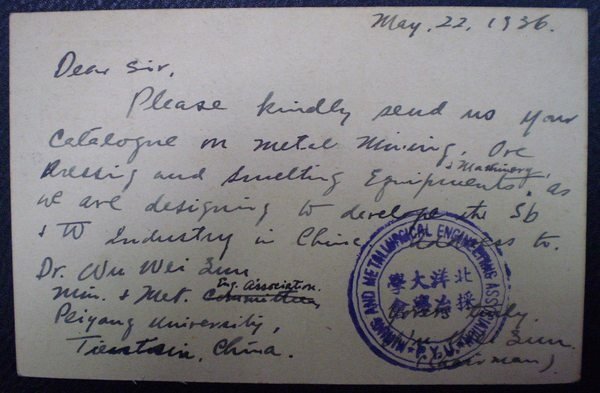 May, 22, 1936.
Dear Sir,
Please kindly send us your
Catalogue on Metal Mining, Ore
Dressing and Smelting Equipments & Machinery, as
we are designing to develope the Sb
& W Industry in China. Address to.
Dr. Wu Wei Sun
Min. & Met. Eng. Association.
Peiyang University,
Tientsin, China.
MINING AND METALLURGICAL ENGINEERING ASSOCIATION
北洋大學
採冶學會
Sun.
(Chairman)